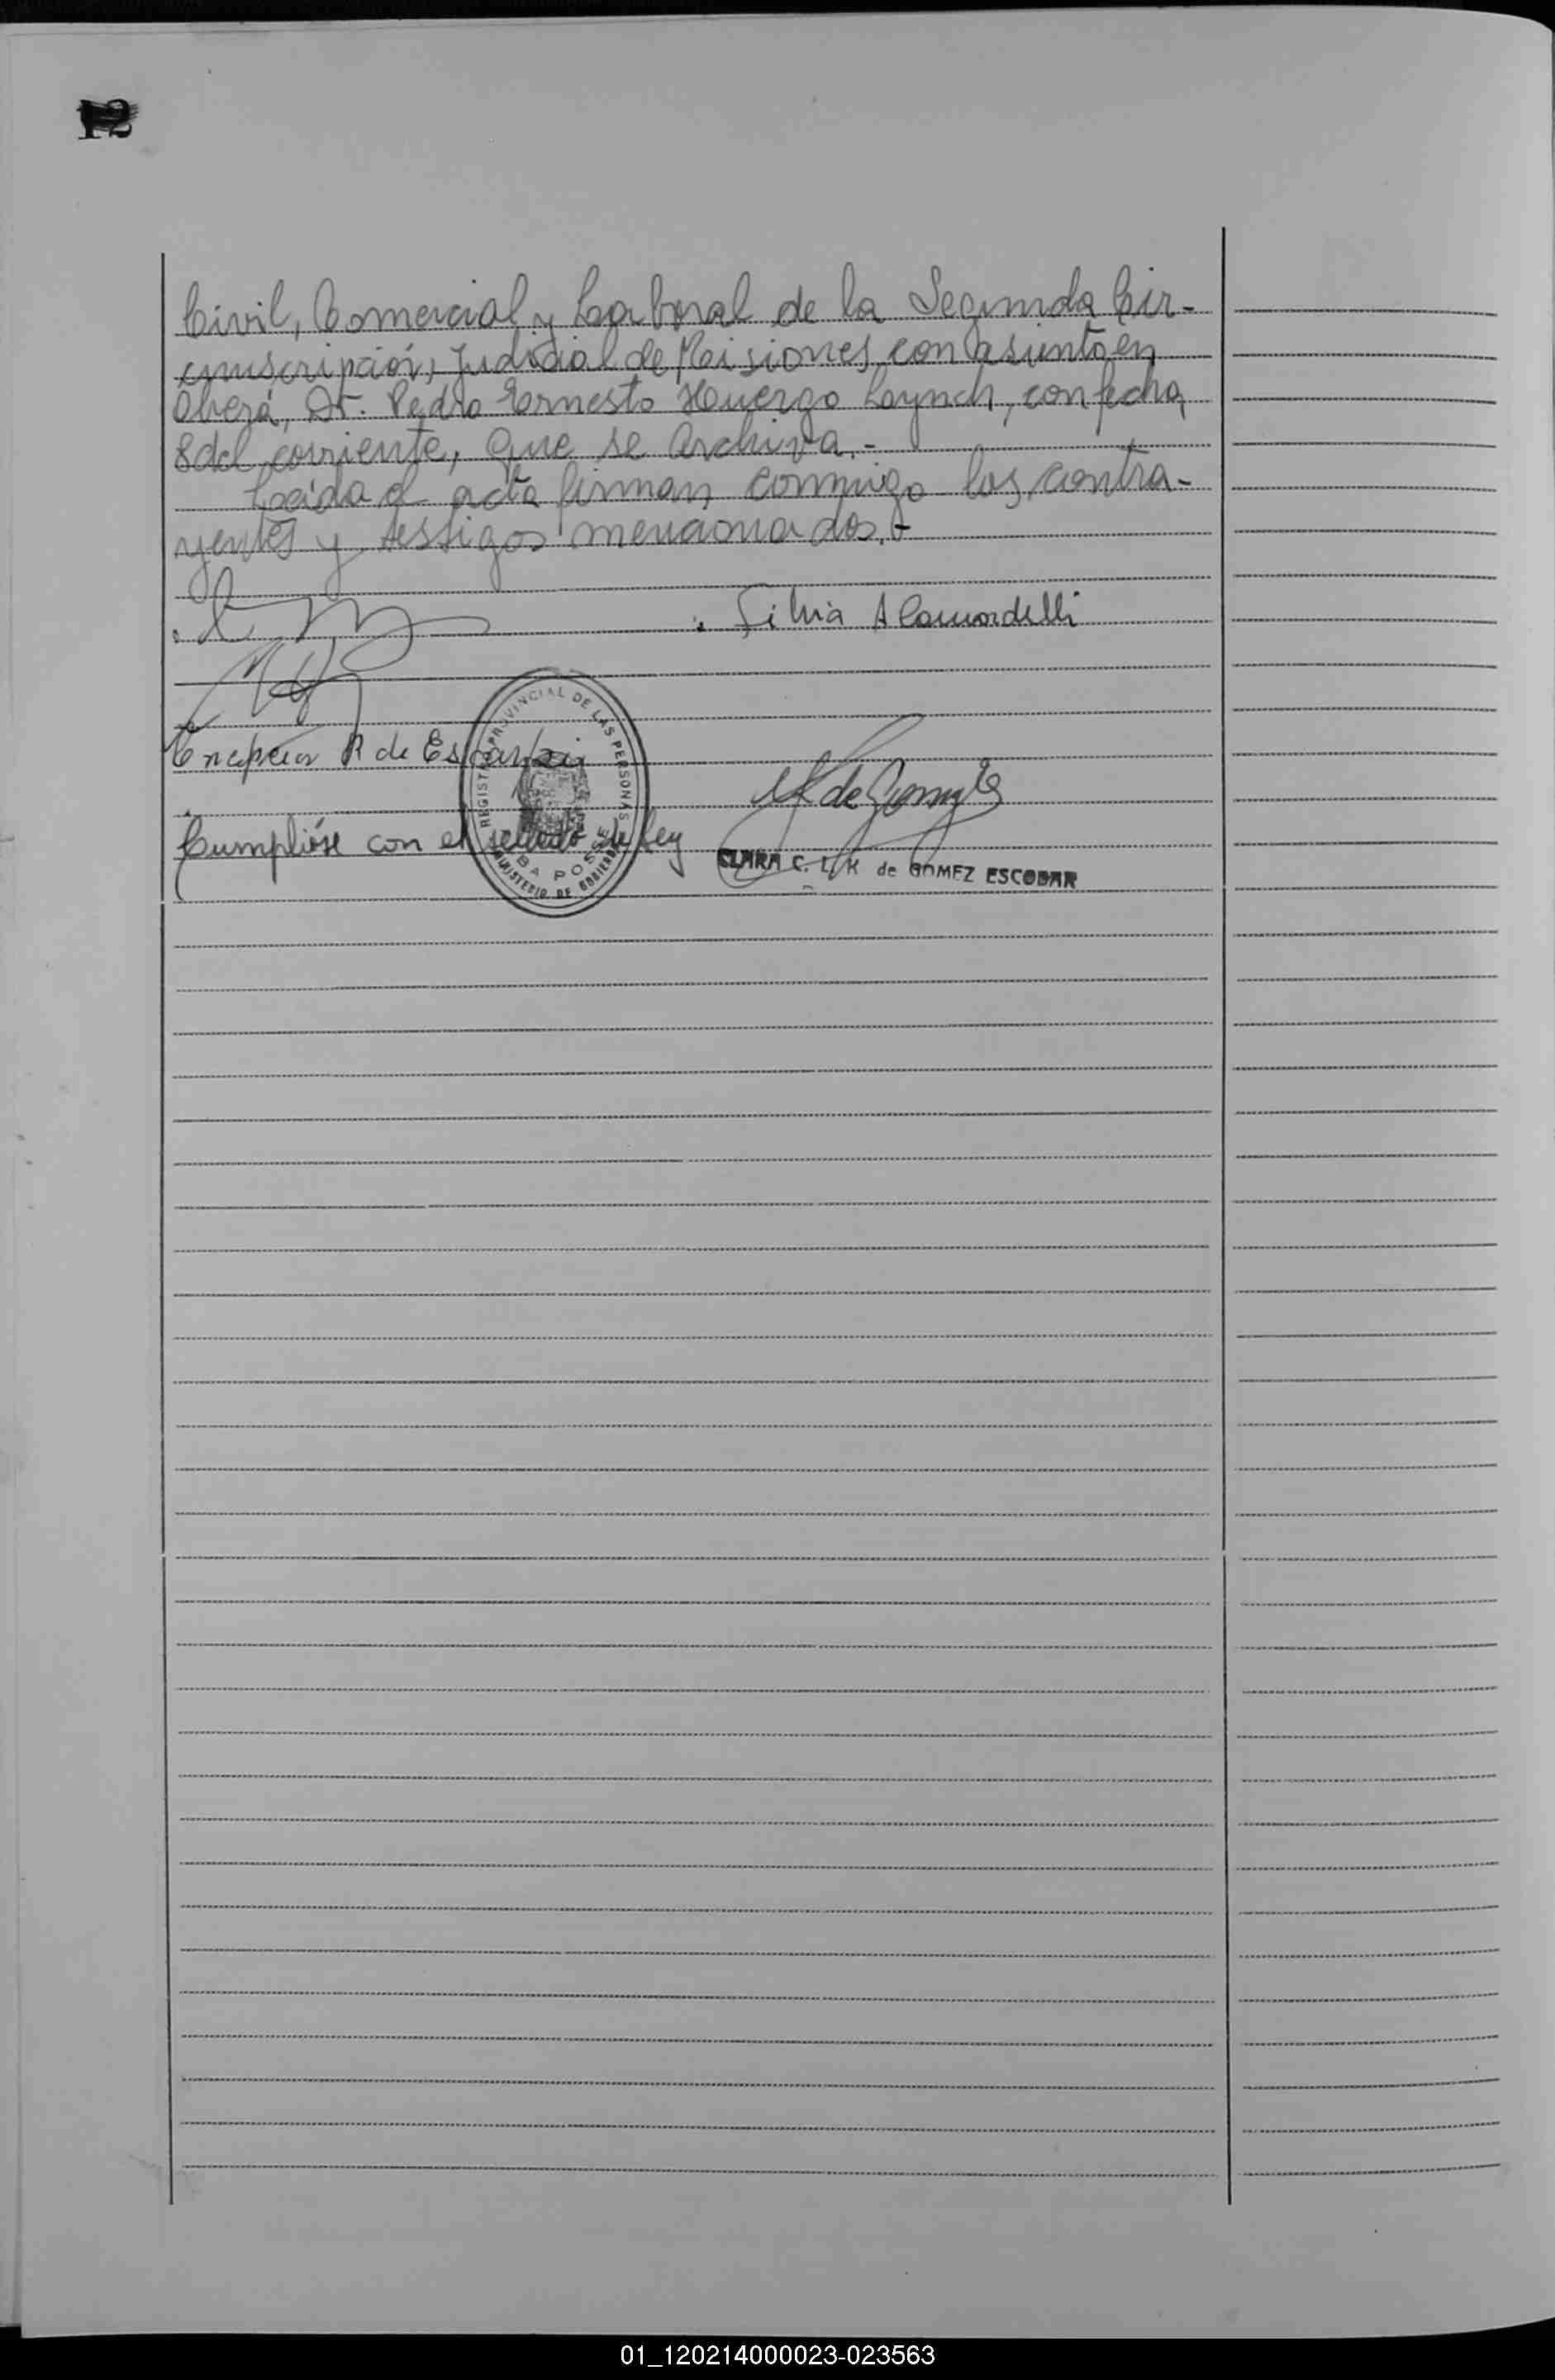 12
Civil, Comercial y Laboral de la Segunda Cir-
cunscripción, Judicial de Misiones, con asiento en
Oberá, Dr. Pedro Ernesto Huergo Laynch, con fecha
8 del corriente, que se archiva.-
Leída el acta firman conmigo los contra-
yentes y testigos mencionados.-
Silvia A
R de
de
REGISTRO PROVINCIAL DE LAS PERSONAS
BA POSSE
MINISTERIO DE GOBIERNO
Cumplióse con el sellado de ley
CLARA C. L. K de GOMEZ ESCOBAR
01_120214000023-023563